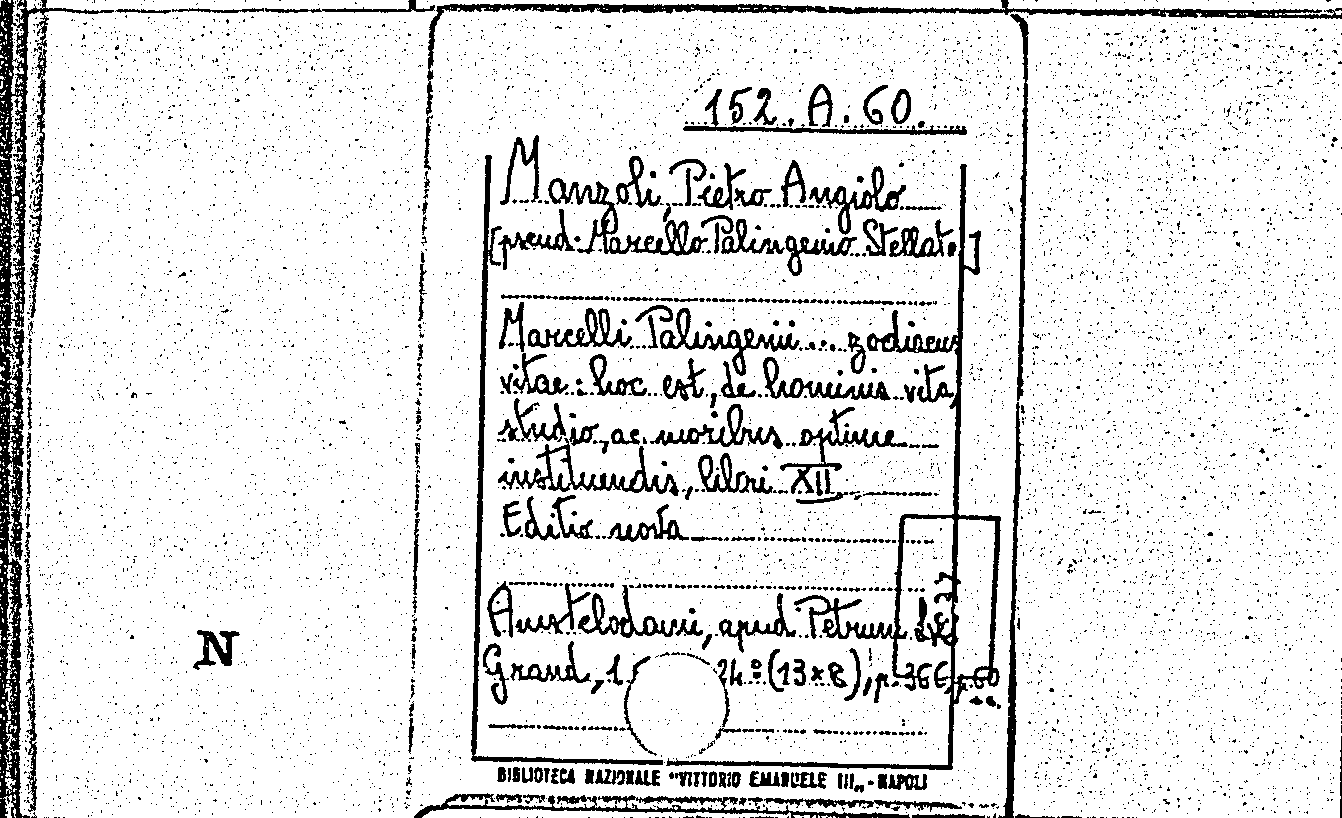 152.A.60.
Manzoli, Pietro Angiolo
[pseud. Marcello Palingenio Stellato]
Marcelli Palingenii... zodiacus
vitae: hoc est, de hominis vita,
studio, ac moribus optime
instituendis, libri XII
Editio nova
Amstelodami, apud Petrum
Grand, 24º (13x8), p. 366, 60
N
BIBLIOTECA NAZIONALE "VITTORIO EMANUELE III„ - NAPOLI